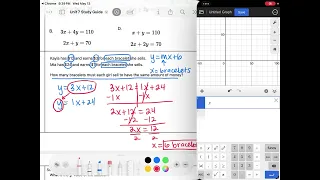 Chrome 6:39 PM Wed May 15
Unit 7 Study Guide
a. 3x + 4y = 110
2x + y = 70
b. x + y = 110
2x + 2y = 70
Kayla has $12 and earns $3 for each bracelet she sells.
Mia has $24 and earns $1 for each bracelet she sells.
y=mx+b
x=bracelets
How many bracelets must each girl sell to have the same amount of money?
y= 3x+12
y= 1x+24
3x+12=1x+24
-1x -1x
2x+12=24
-12 -12
2x=12
2 2
x=6 bracelets